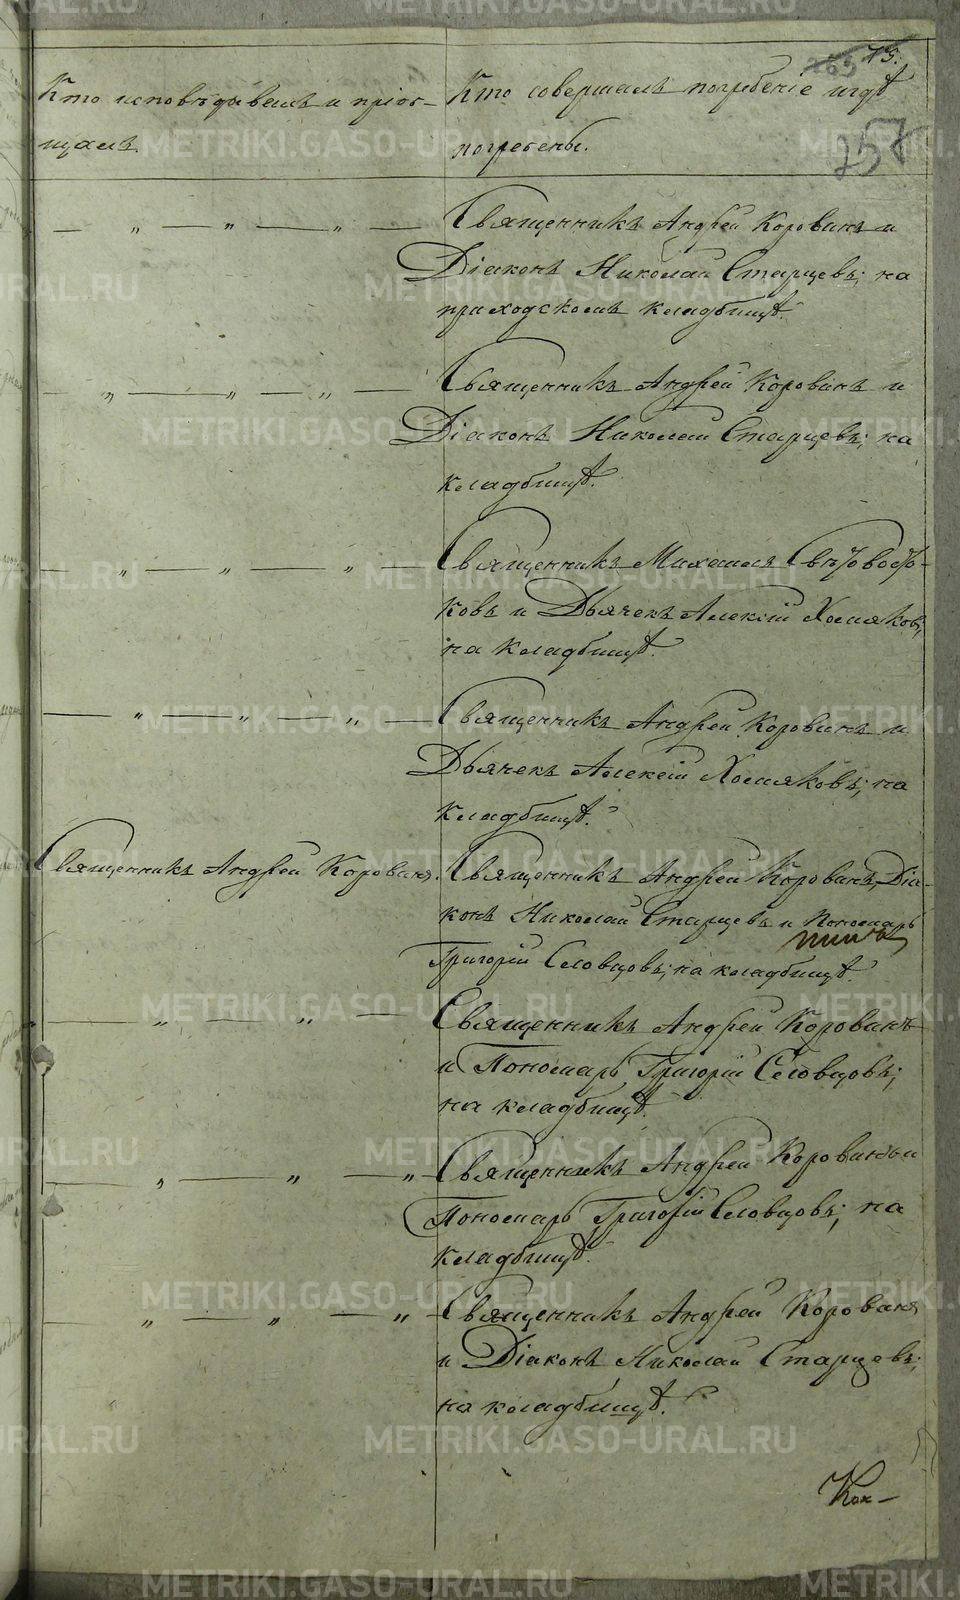 263 75.
257
Кто исповѣдывалъ и пріоб-
щалъ.
Кто совершалъ погребеніе и гдѣ
погребены.
— „ — „ — „ —
Священникъ Андрей Коровинъ и
Діаконъ Николай Старцевъ; на
приходскомъ кладбищѣ.
— „ — „ — „ —
Священникъ Андрей Коровинъ и
Діаконъ Николай Старцевъ; на
кладбищѣ.
— „ — „ — „ —
Священникъ Михаилъ
ковъ и Дьячекъ Алексій Хомяковъ;
на кладбищѣ.
— „ — „ — „ —
Священникъ Андрей Коровинъ и
Дьячекъ Алексій Хомяковъ; на
кладбищѣ.
Священникъ Андрей Коровинъ.
Священникъ Андрей Коровинъ, Діа-
конъ Николай Старцевъ и Пономарь
Григорій Словцовъ; на кладбищѣ.
— „ — „ —
Священникъ Андрей Коровинъ
и Пономарь Григорій Словцовъ;
на кладбищѣ.
— „ — „ — „ —
Священникъ Андрей Коровинъ и
Пономарь Григорій Словцовъ; на
кладбищѣ.
— „ — „ — „ —
Священникъ Андрей Коровинъ
и Діаконъ Николай Старцевъ;
на кладбищѣ.
METRIKI.GASO-URAL.RU